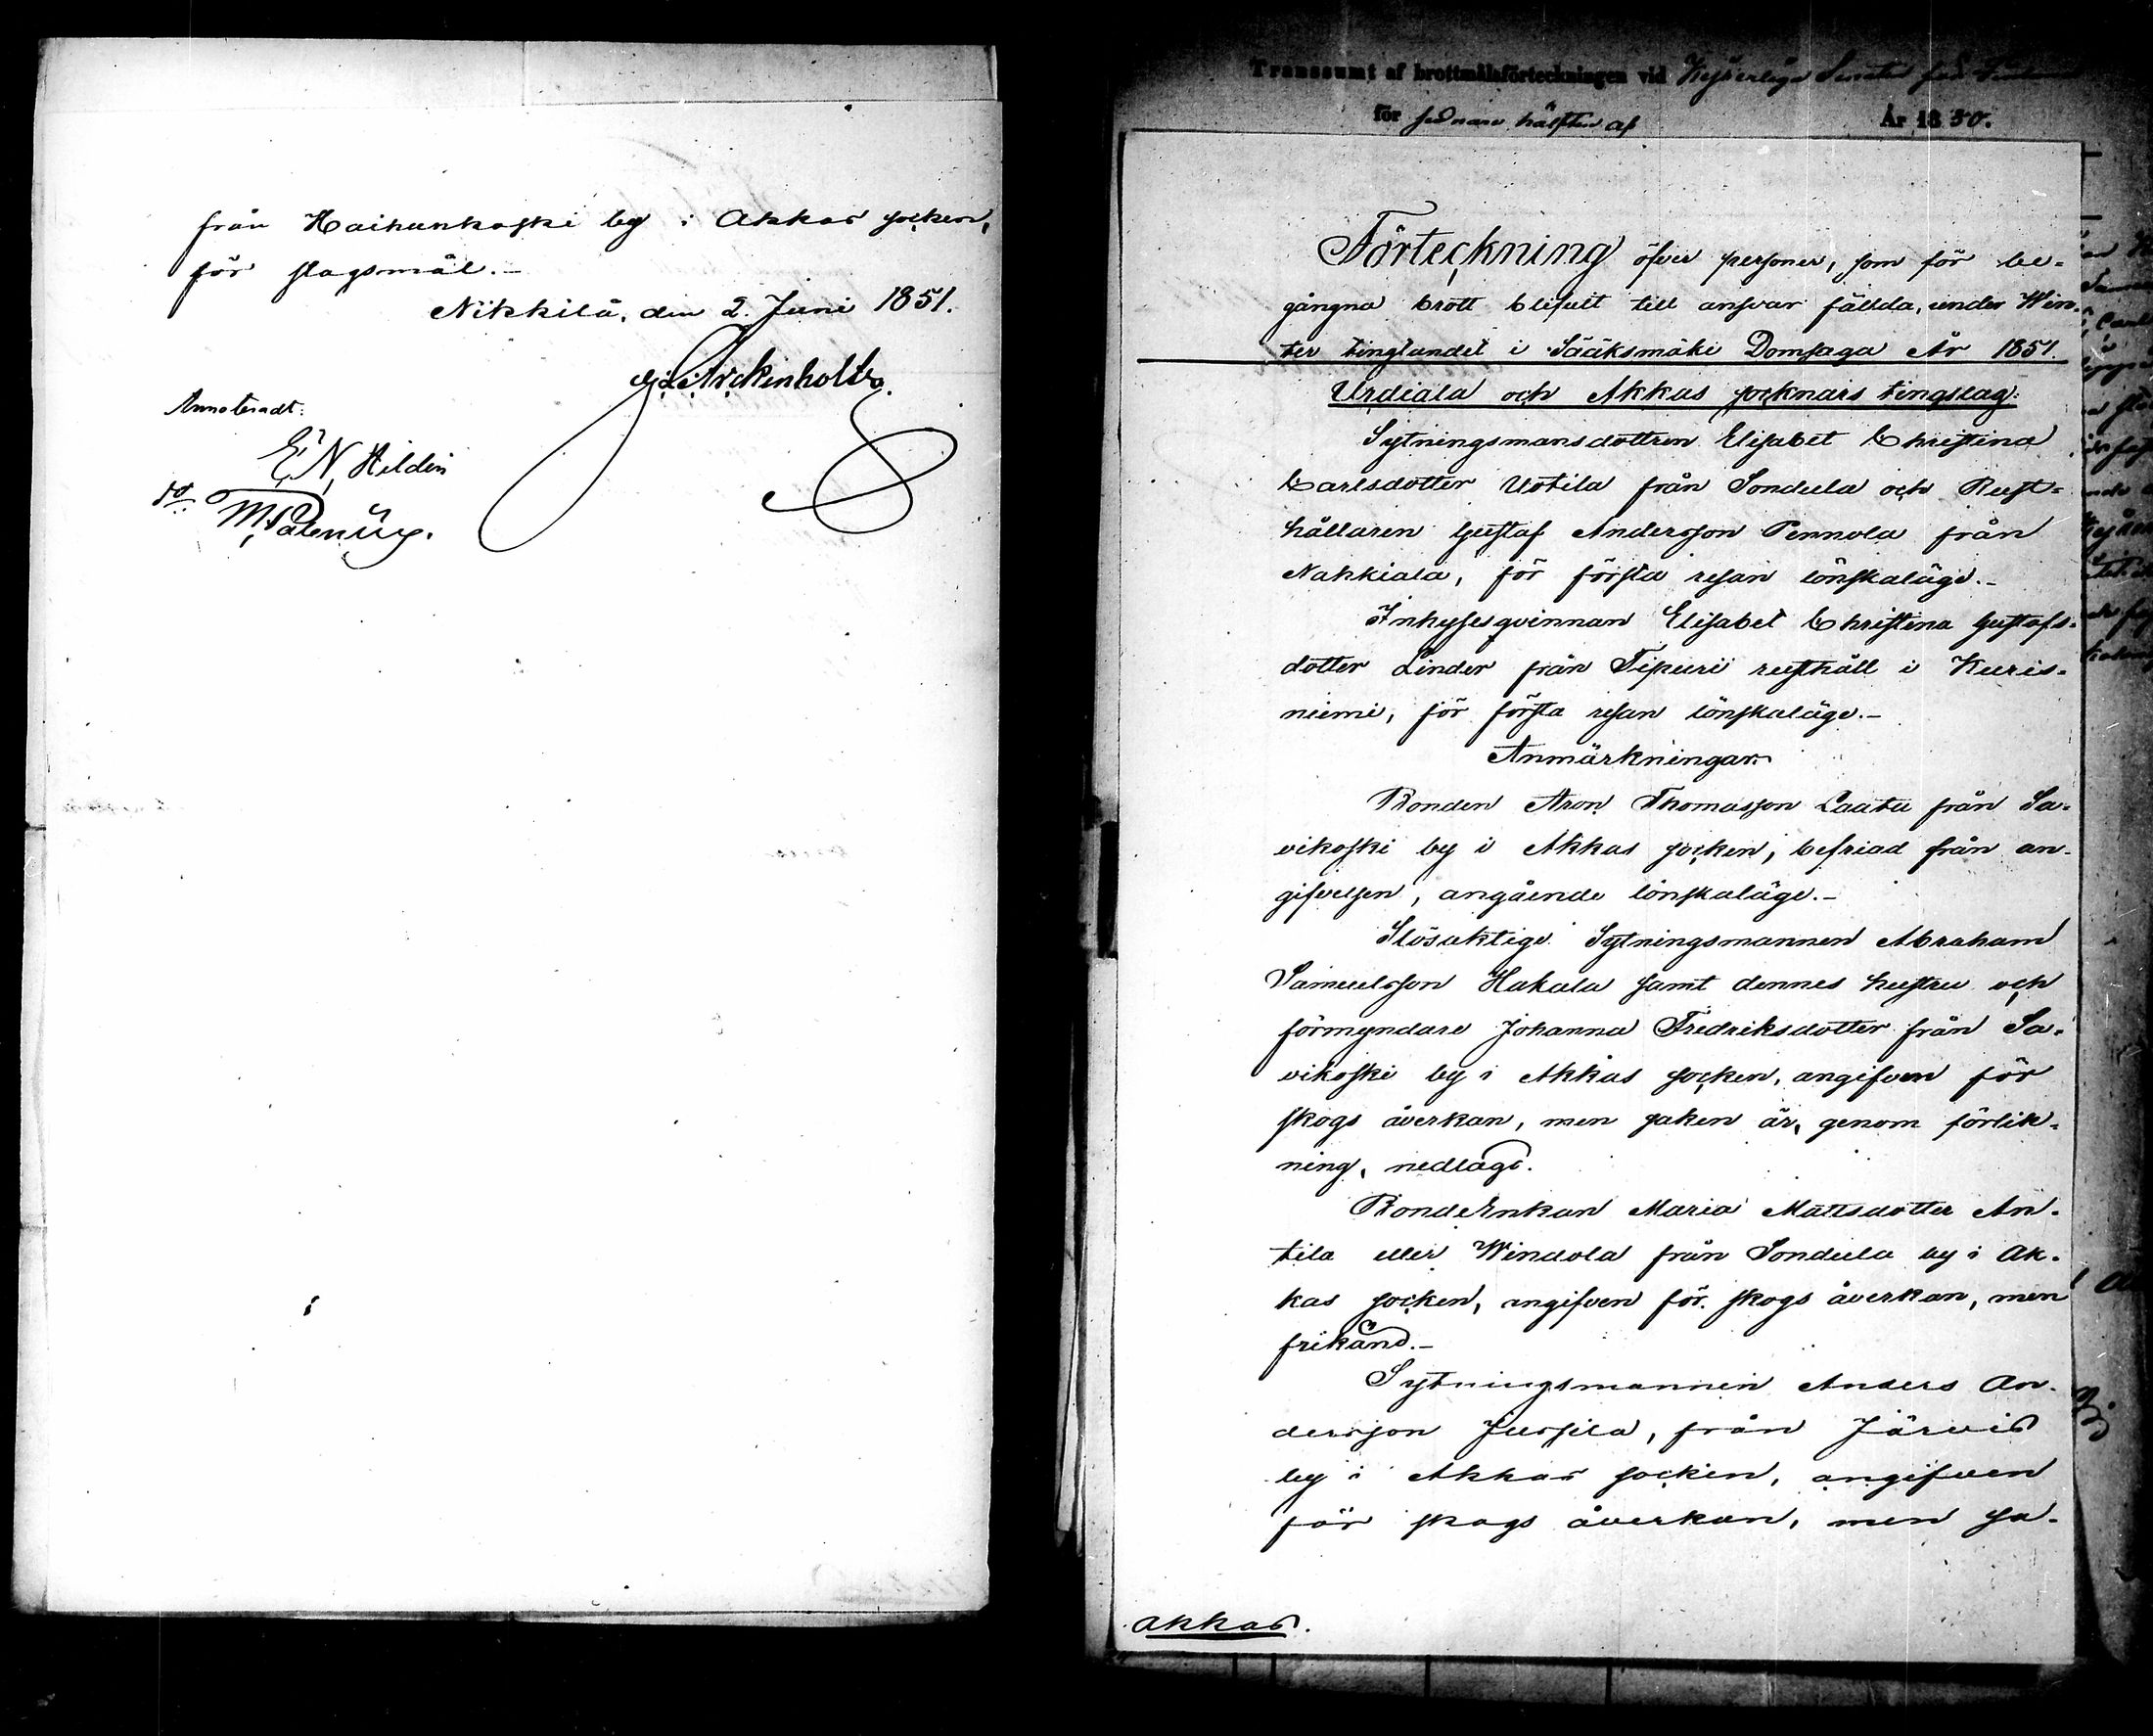 från Haihunkoski by i Akkas socken,
för slagsmål.-
Nikkilä, den 2. Juni 1851.
Arckenholtz
Annoteradt:
E. N. Hildén
M. Palenius.
Transsumt af brottmålsförteckningen vid Kejserliga Senaten för Finland
för sednare hälften af År 1850.
Förteckning öfver personer, som för be-
gångna brott blifvit till ansvar fällda, under Win-
ter tinglandet i Sääksmäki Domsaga År 1851.
Urdiala och Akkas socknars tingslag:
Sytningsmansdottren Elisabet Christina
Carlsdotter Uotila från Sondula och Rust-
hållaren Gustaf Andersson Pennola från
Nahkiala, för första resan lönskaläge.-
Inhysesqvinnan Elisabet Christina Gustafs-
dotter Linder från Tipuri rusthåll i Kuris-
niemi, för första resan lönskaläge.-
Anmärkningar.
Bonden Aron Thomasson Laatu från Sa-
vikoski by i Akkas socken, befriad från an-
gifvelsen, angående lönskaläge.-
Slösaktige Sytningsmannen Abraham
Samuelsson Hakala samt dennes hustru och
förmyndare Johanna Fredriksdotter från Sa-
vikoski by i Akkas socken, angifven för
skogs åverkan, men saken är, genom förlik-
ning, nedlagd.
BondeEnkan Maria Mattsdotter An-
tila eller Windola från Sondula by i Ak-
kas socken, angifven för skogs åverkan, men
frikänd.-
Sytningsmannen Anders An-
dersson Jussila, från Järvis
by i Akkas socken, angifven
för skogs åverkan, men sa-
Akkas.